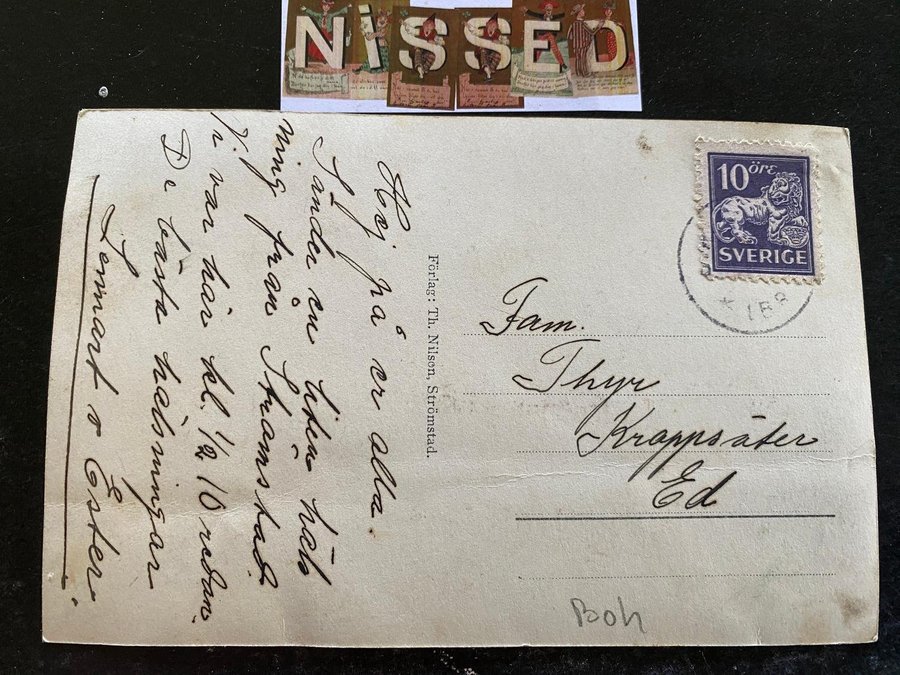 NISSED
Hej på er alla.
Sänder en liten häls
ning från Strömstad.
Vi var här kl. 1/2 10 redan.
De bästa hälsningar
Lennart o Ester.
Förlag: Th. Nilson, Strömstad.
10 ÖRE
SVERIGE
Fam.
Thyr
Kroppsäter
Ed
Boh